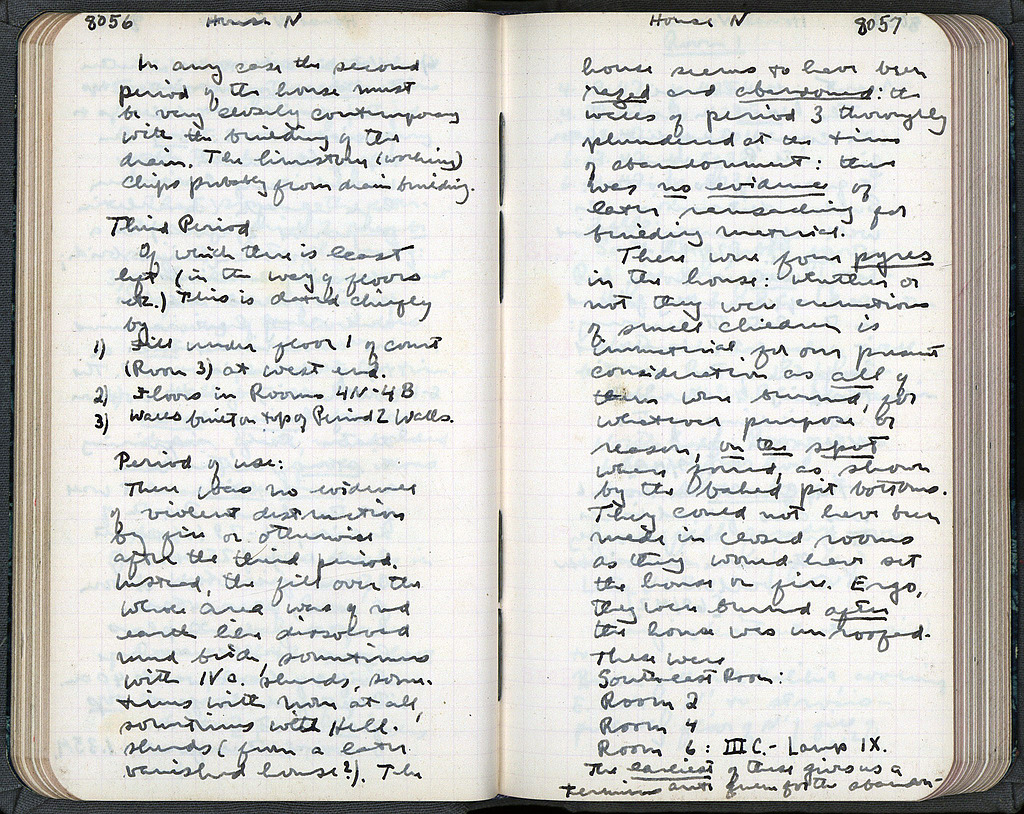 8056 House N
In any case the second
period of the house must
be very closely contemporary
with the building of the
drain. The limestone (working)
chips probably from drain building.
Third Period.
Of which there is least
left (in the way of floors
etc.) This is dated chiefly
by
1) Fill under floor 1 of court
(Room 3) at west end.
2) Floors in Rooms 4N-4B
3) Walls built on top of Period 2 Walls.
Period of use:
There was no evidence
of violent destruction
by fire or otherwise
after the third period.
Instead, the fill over the
whole area was of red
earth like dissolved
mud brick, sometimes
with IVc. sherds, some-
times with none at all,
sometimes with Hell.
sherds (from a later
vanished house?). The
House N 8057
house seems to have been
razed and abandoned: the
walls of period 3 thoroughly
plundered at the time
of abandonment: there
was no evidence of
later ransacking for
building material.
There were four pyres
in the house: whether or
not they were cremations
of small children is
immaterial for our present
consideration as all of
them were burned, for
whatever purpose or
reason, on the spot
where found, as shown
by the baked pit bottoms.
They could not have been
made in closed rooms
as they would have set
the house on fire. Ergo,
they were burned after
the house was unroofed.
These were
Southeast Room:
Room 2
Room 4
Room 6: III C. - Lamp IX.
The earliest of these gives us a
terminus ante quem for the abandon-